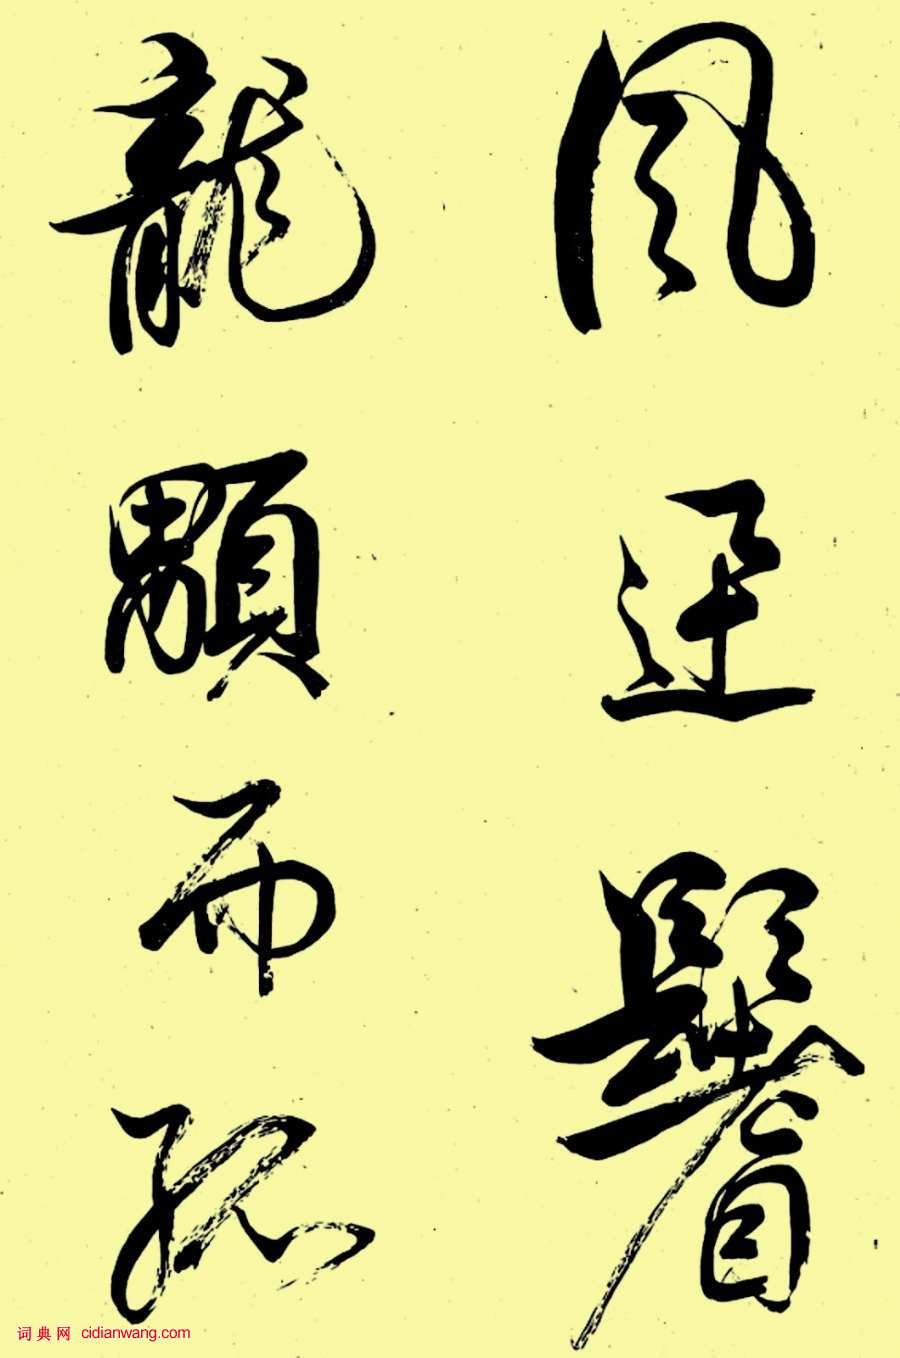 風逆鬐
龍顒而孤
词典网 cidianwang.com